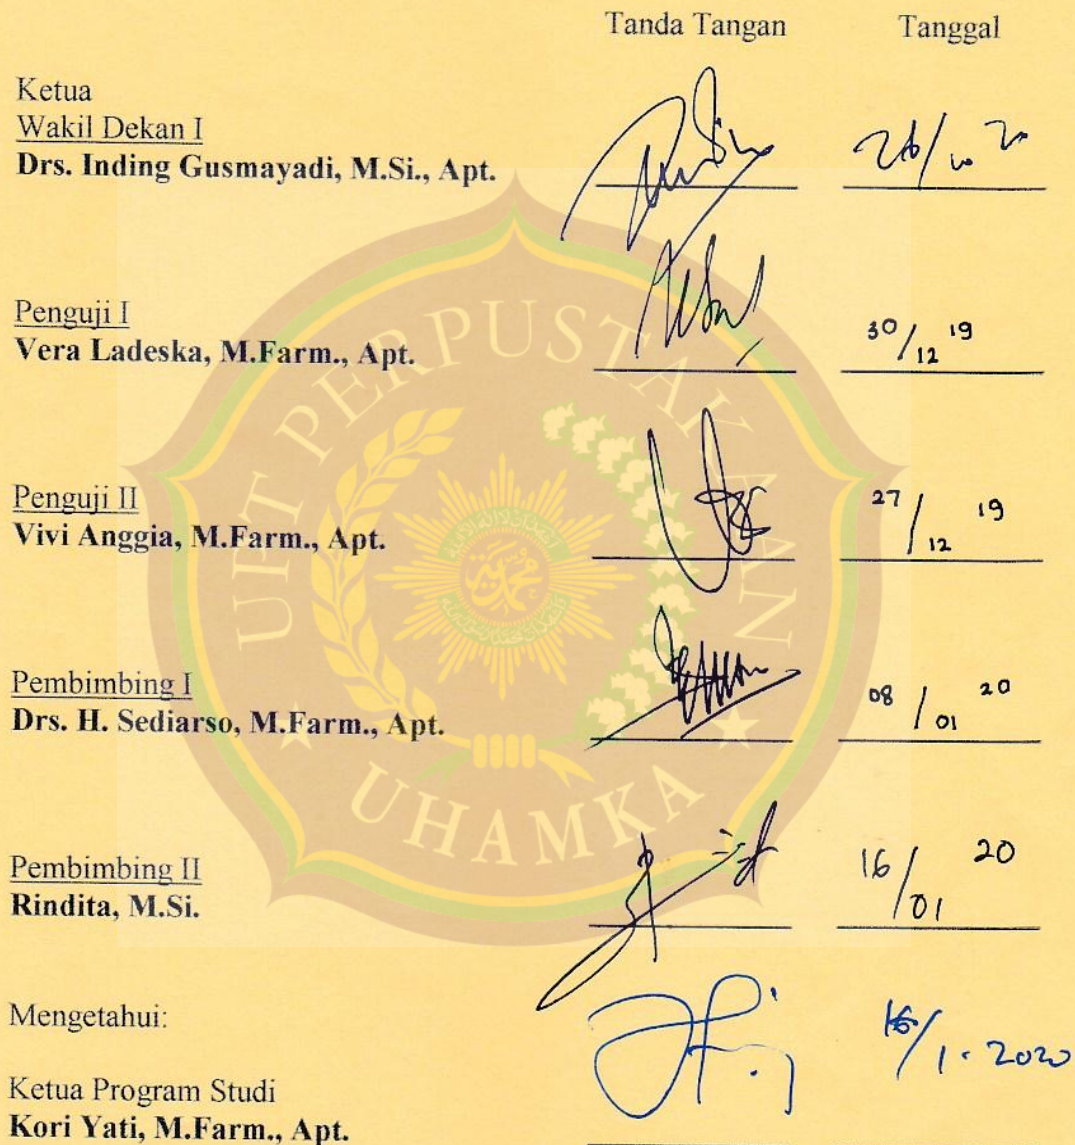 Tanda Tangan Tanggal
Ketua
Wakil Dekan I
Drs. Inding Gusmayadi, M.Si., Apt.
Penguji I
Vera Ladeska, M.Farm., Apt. 30/12 19
Penguji II
Vivi Anggia, M.Farm., Apt. 27/12 19
Pembimbing I
Drs. H. Sediarso, M.Farm., Apt. 08/01 20
Pembimbing II
Rindita, M.Si. 16/01 20
Mengetahui:
Ketua Program Studi
Kori Yati, M.Farm., Apt.
/1. 2020
UPT PERPUSTAKAAN
UHAMKA